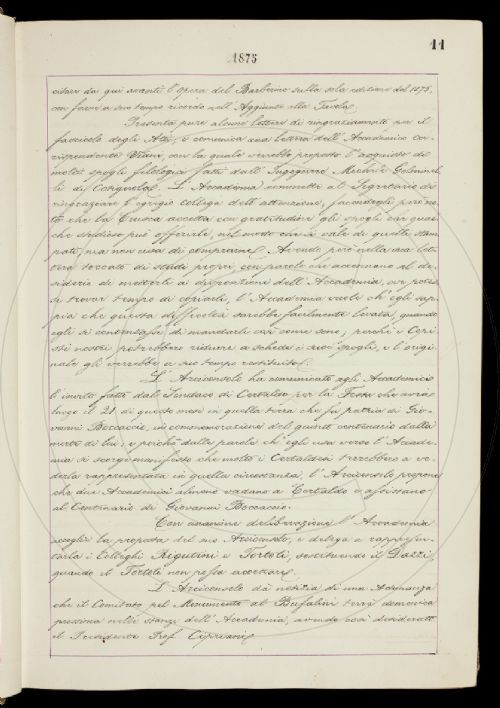 11
1875
citare da qui avanti l'opera del Barberino sulla sola edizione del 1875,
con farne a suo tempo ricordo nell'Aggiunte alla Tavola.
Presenta pure alcune lettere di ringraziamento per il
fascicolo degli Atti, e comunica una lettera dell'Accademico Cor-
rispondente Viani, con la quale verrebbe proposto l'acquisto dei
molti spogli filologici fatti dall'Ingegnere Michele
li di Correggio. L'Accademia commette al Segretario di
ringraziare l'egregio collega dell'attenzione, facendogli però no-
to che la Crusca accetta con gratitudine gli spogli che qual-
che studioso può offrirle, nel modo che si vale di quelli stam-
pati, ma non usa di comprarne. Avendo però nella sua let-
tera toccato di studi propri, con parole che accennano al de-
siderio di metterli a disposizione dell'Accademia, ove potes-
se trovar tempo di copiarli, l'Accademia vuole ch'egli sap-
pia che questa difficoltà sarebbe facilmente levata, quando
egli si contentasse di mandarli così come sono; perchè i Copi-
sti nostri potrebbero ridurre a schede i suoi spogli, e l'origi-
nale gli verrebbe a suo tempo restituito.
L'Arciconsolo ha comunicato agli Accademici
l'invito fatto dal Sindaco di Certaldo per la Festa che avrà
luogo il 21 di questo mese in quella terra che fu patria di Gio-
vanni Boccaccio, in commemorazione del quinto centenario dalla
morte di lui; e poichè dalle parole ch'egli usa verso l'Accade-
mia si scorge manifesto che molto i Certaldesi terrebbero a ve-
derla rappresentata in quella circostanza, l'Arciconsolo propone
che due Accademici almeno vadano a Certaldo e assistano
al Centenario di Giovanni Boccaccio.
Con unanime deliberazione l'Accademia
accoglie la proposta del suo Arciconsolo, e delega a rappresen-
tarla i Colleghi Rigutini e Tortoli, sostituendo il Dazzi,
quando il Tortoli non possa accettare.
L'Arciconsolo dà notizia di una Adunanza
che il Comitato pel Monumento al Bufalini terrà domenica
prossima nelle stanze dell'Accademia, avendo così desiderato
il Presidente Prof. Cipriani.